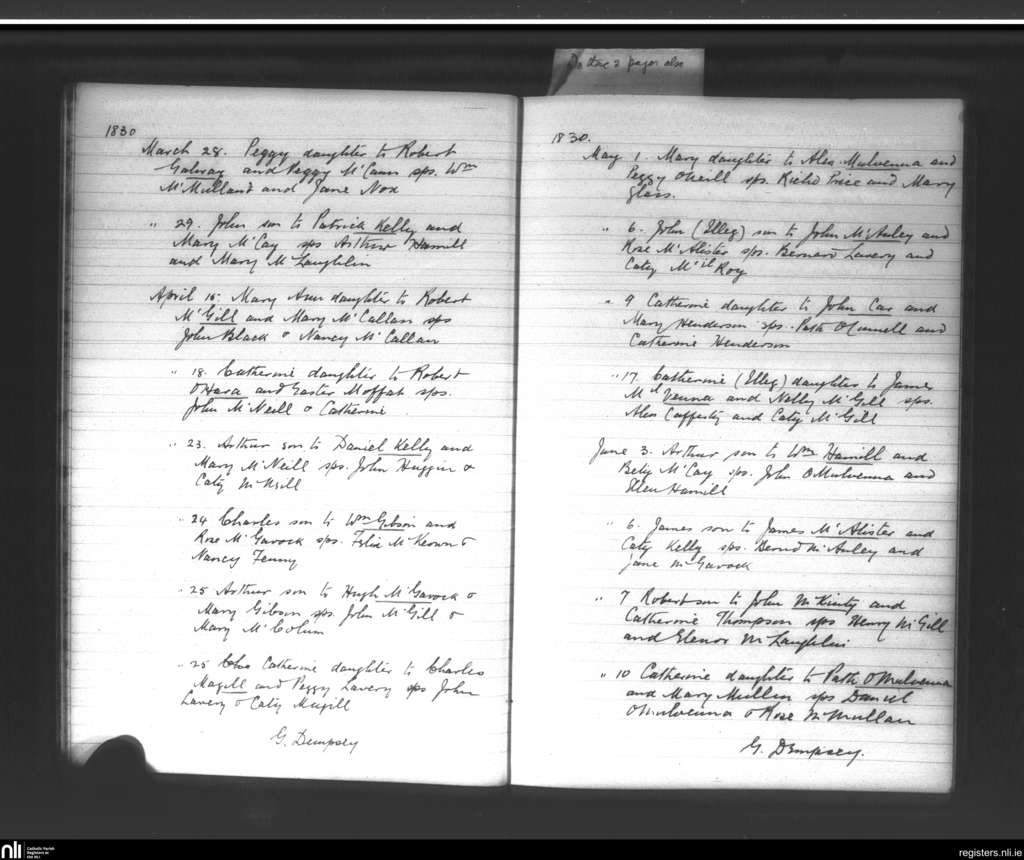 Do these 2 pages also
1830
March 28. Peggy daughter to Robert
Galway and Peggy McCann sps. Wm
McMulland and Jane Nox
" 29. John son to Patrick Kelly and
Mary McCay sps Arthur Hamill
and Mary McLaughlin
April 15. Mary Ann daughter to Robert
McGill and Mary McCallan sps
John Black & Nancy McCallan
" 18. Catherine daughter to Robert
OHara and Easter Moffat sps.
John McNeill & Catherine
" 23. Arthur son to Daniel Kelly and
Mary McNeill sps. John Huggin &
Caty McNeill
" 24 Charles son to Wm Gibson and
Rose McGavock sps. Felix McKeown &
Nancy Fenny
" 25 Arthur son to Hugh McGavock &
Mary Gibson sps. John McGill &
Mary McColum
" 25 Catherine daughter to Charles
Magill and Peggy Lavery sps John
Lavery & Caty Magill
G. Dempsey
1830.
May 1. Mary daughter to Alex. Mulvenna and
Peggy ONeill sps. Richd Price and Mary
Glass.
" 6. John (Illeg) son to John McAuley and
Rose McAlister sps. Bernard Lavery and
Caty McIl Roy
" 9 Catherine daughter to John Car and
Mary Henderson sps. Patk OConnell and
Catherine Henderson
" 17. Catherine (Illeg) daughter to James
McIl Venna and Nelly McGill sps.
Alex Cafferty and Caty McGill
June 3. Arthur son to Wm Hamill and
Bety McCay sps. John OMulvenna and
Ellen Hamill
" 6. James son to James McAlister and
Caty Kelly sps. Bernd McAuley and
Jane McGavock
" 7 Robert son to John McKinty and
Catherine Thompson sps Henry McGill
and Elenor McLaughlin
" 10 Catherine daughter to Patk OMulvenna
and Mary Mullin sps Daniel
OMulvenna & Rose McMullan
G. Dempsey.
nli
Catholic Parish
Registers at
the NLI
registers.nli.ie